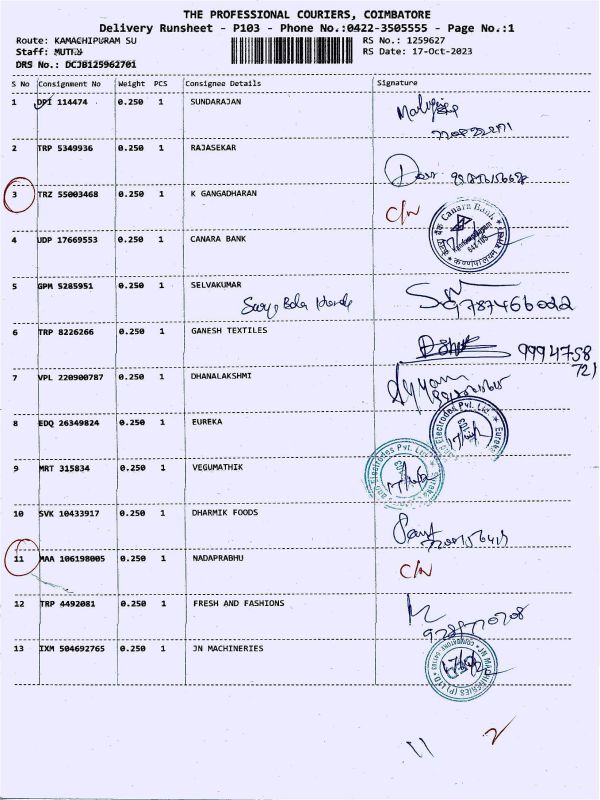 THE PROFESSIONAL COURIERS, COIMBATORE
Delivery Runsheet - P103 - Phone No.:0422-3505555 - Page No.:1
Route: KAMACHIPURAM SU RS No.: 1259627
Staff: MUTHU RS Date: 17-Oct-2023
DRS No.: DCJB125962701
S No Consignment No Weight PCS Consignee Details Signature
1 DPI 114474 0.250 1 SUNDARAJAN
2 TRP 5349936 0.250 1 RAJASEKAR
3 TRZ 55003468 0.250 1 K GANGADHARAN C/N
4 UDP 17669553 0.250 1 CANARA BANK Canara Bank
5 GPM 5285951 0.250 1 SELVAKUMAR
9787466022
6 TRP 8226266 0.250 1 GANESH TEXTILES
9994758
721
7 VPL 220900787 0.250 1 DHANALAKSHMI
8 EDQ 26349824 0.250 1 EUREKA Eureka Electrodes Pvt. Ltd
9 MRT 315834 0.250 1 VEGUMATHIK Eureka Electrodes Pvt. Ltd
10 SVK 10433917 0.250 1 DHARMIK FOODS
11 MAA 106198005 0.250 1 NADAPRABHU C/N
12 TRP 4492081 0.250 1 FRESH AND FASHIONS
13 IXM 504692765 0.250 1 JN MACHINERIES JN MACHINERIES (P) LTD
11 2